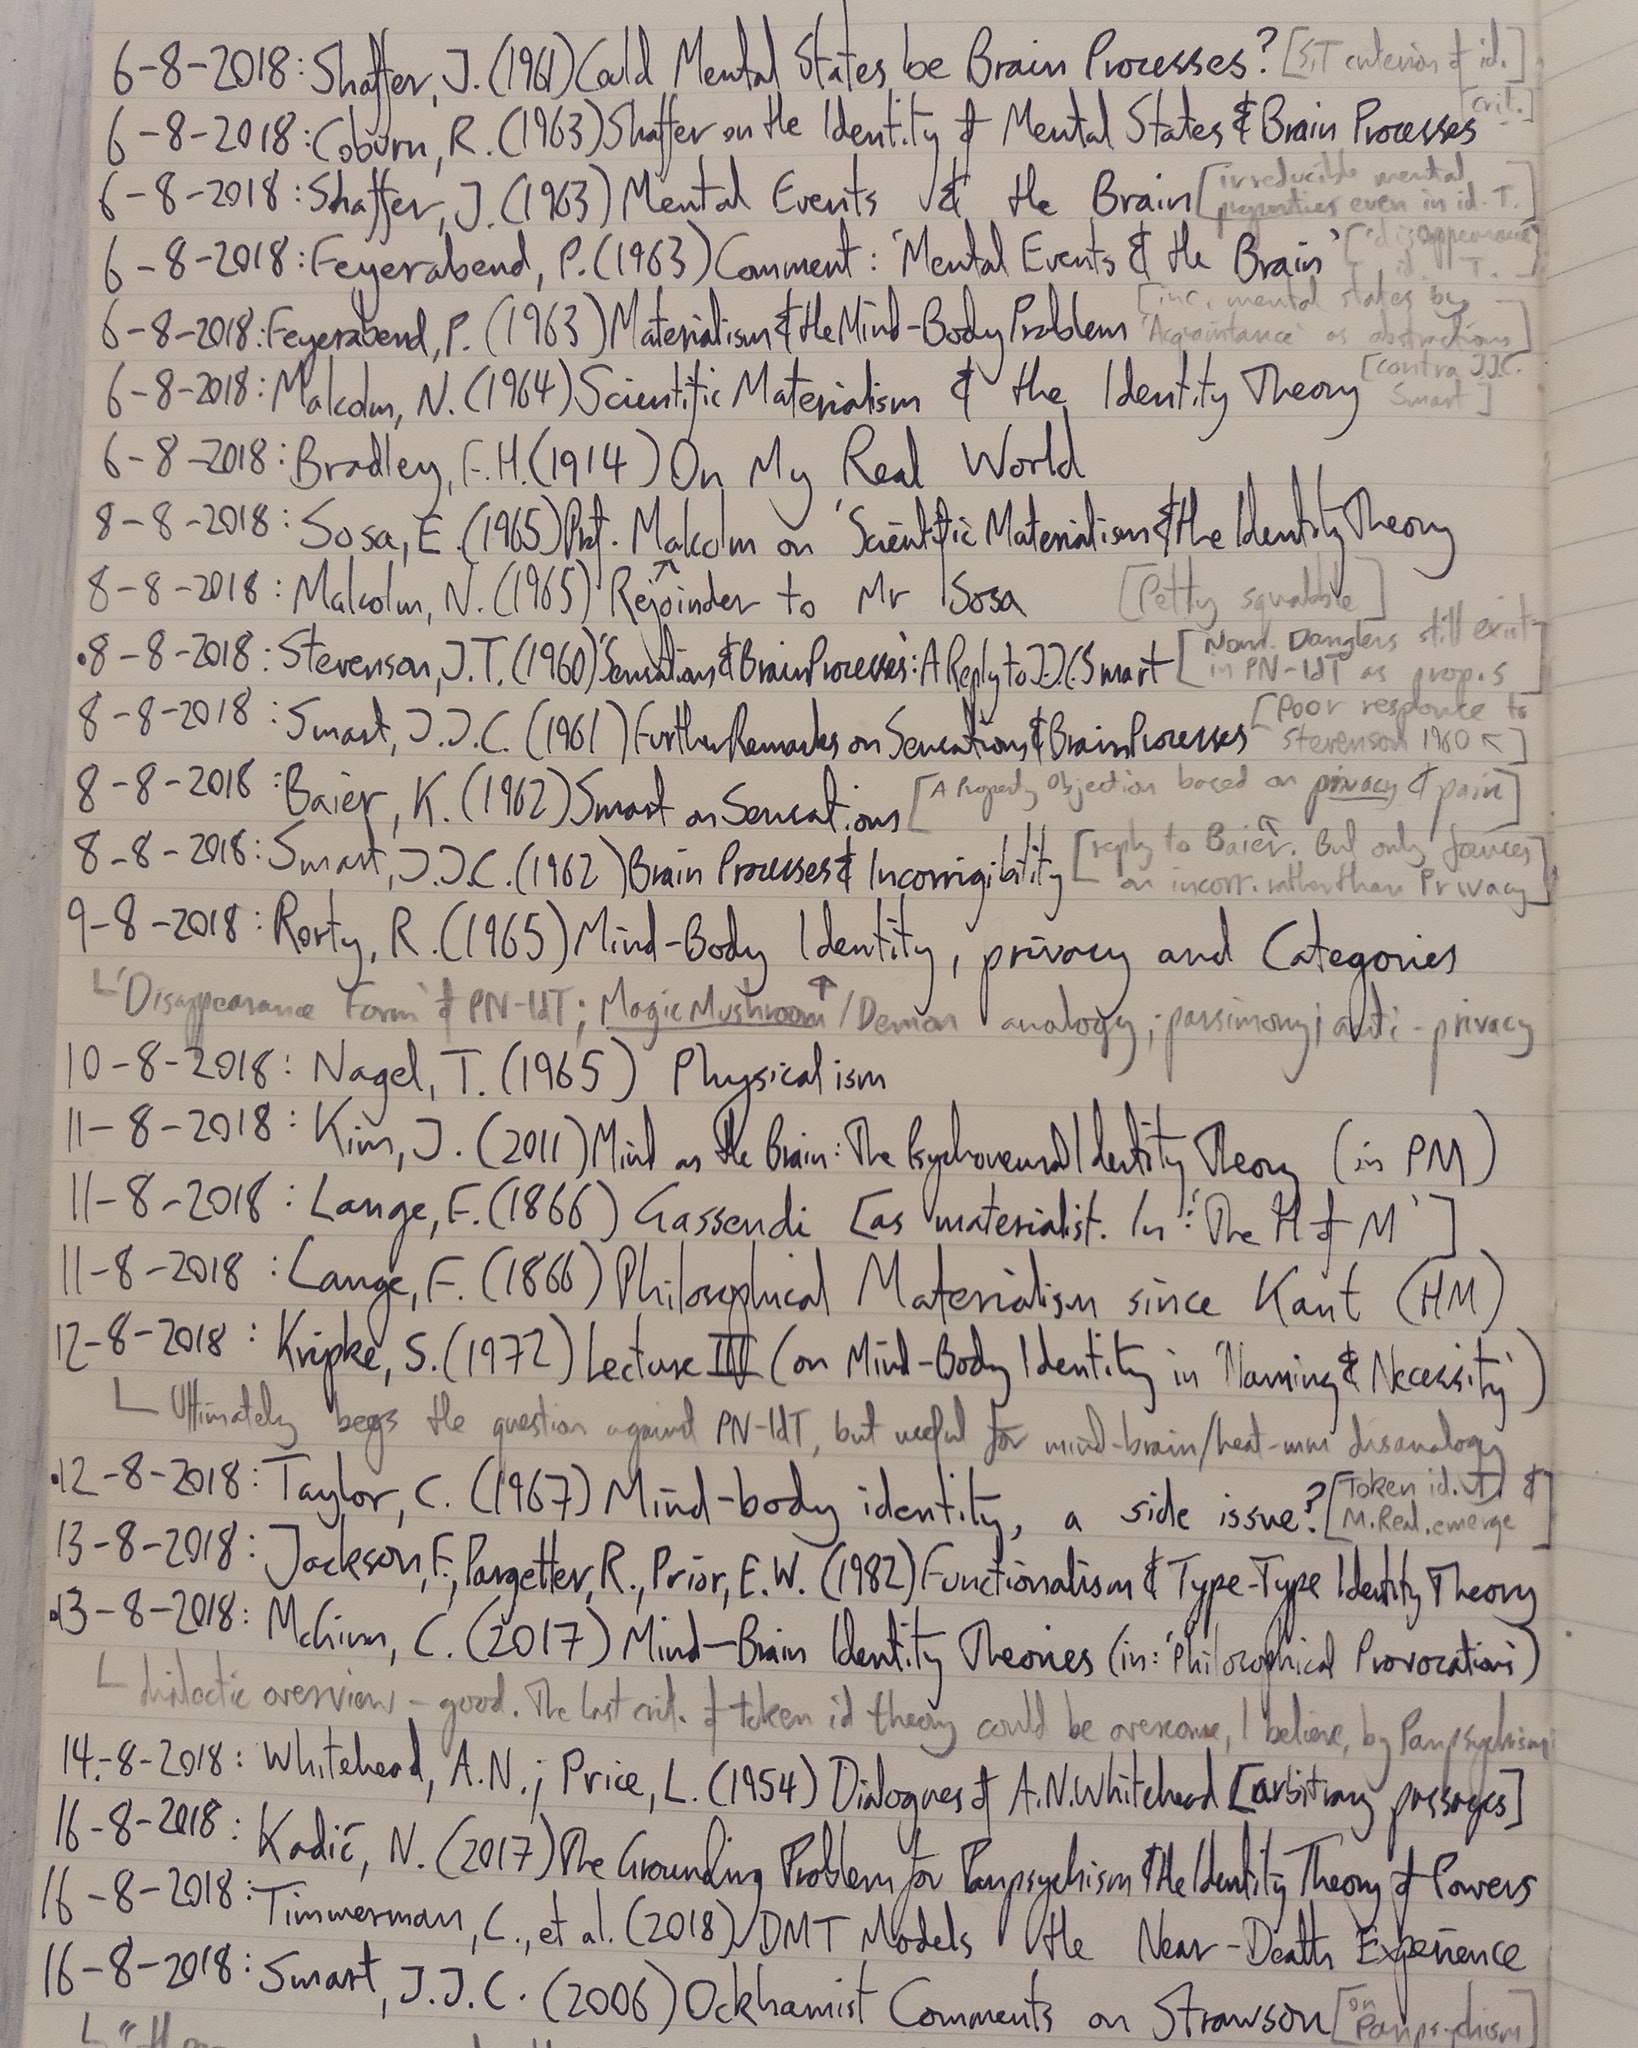 6-8-2018: Shaffer, J. (1961) Could Mental States be Brain Processes? [S,T criterion of id.]
6-8-2018: Coburn, R. (1963) Shaffer on the Identity of Mental States & Brain Processes [crit.]
6-8-2018: Shaffer, J. (1963) Mental Events & the Brain [irreducible mental
properties even in id. T.]
6-8-2018: Feyerabend, P. (1963) Comment: 'Mental Events & the Brain' ['disappearance'
id. T.]
6-8-2018: Feyerabend, P. (1963) Materialism & the Mind-Body Problem [inc. mental states by
'Acquaintance' as abstractions]
6-8-2018: Malcolm, N. (1964) Scientific Materialism & the Identity Theory [contra J.J.C.
Smart]
6-8-2018: Bradley, F.H. (1914) On My Real World
8-8-2018: Sosa, E. (1965) Prof. Malcolm on 'Scientific Materialism & the Identity Theory
8-8-2018: Malcolm, N. (1965) Rejoinder to Mr Sosa [Petty squabble]
•8-8-2018: Stevenson, J.T. (1960) 'Sensations & Brain Processes': A Reply to J.J.C. Smart [Nom. Danglers still exist
in PN-IdT as prop.s]
8-8-2018: Smart, J.J.C. (1961) Further Remarks on Sensations & Brain Processes [Poor response to
Stevenson 1960 ↖]
8-8-2018: Baier, K. (1962) Smart on Sensations [A Property Objection based on privacy & pain]
8-8-2018: Smart, J.J.C. (1962) Brain Processes & Incorrigibility [reply to Baier↑. But only focuses
on incorr. rather than Privacy]
9-8-2018: Rorty, R. (1965) Mind-Body Identity, privacy and Categories
└ 'Disappearance Form' of PN-IdT; Magic Mushroom↑/Demon analogy; parsimony; anti-privacy
10-8-2018: Nagel, T. (1965) Physicalism
11-8-2018: Kim, J. (2011) Mind as the Brain: The Psychoneural Identity Theory (in PM)
11-8-2018: Lange, F. (1866) Gassendi [as materialist. In: 'The H of M']
11-8-2018: Lange, F. (1866) Philosophical Materialism since Kant (HM)
12-8-2018: Kripke, S. (1972) Lecture III (on Mind-Body Identity in 'Naming & Necessity')
└ Ultimately begs the question against PN-IdT, but useful for mind-brain/heat-mm disanalogy
•12-8-2018: Taylor, C. (1967) Mind-body identity, a side issue? [Token id. T. &
M.Real. emerge]
13-8-2018: Jackson, F., Pargetter, R., Prior, E.W. (1982) Functionalism & Type-Type Identity Theory
•13-8-2018: McGinn, C. (2017) Mind-Brain Identity Theories (in: 'Philosophical Provocations')
└ dialectic overview - good. The last crit. of token id theory could be overcome, I believe, by Panpsychism
14-8-2018: Whitehead, A.N.; Price, L. (1954) Dialogues of A.N.Whitehead [arbitrary passages]
16-8-2018: Kadić, N. (2017) The Grounding Problem for Panpsychism & the Identity Theory of Powers
16-8-2018: Timmerman, C., et al. (2018) DMT Models the Near-Death Experience
16-8-2018: Smart, J.J.C. (2006) Ockhamist Comments on Strawson [on
Panpsychism]